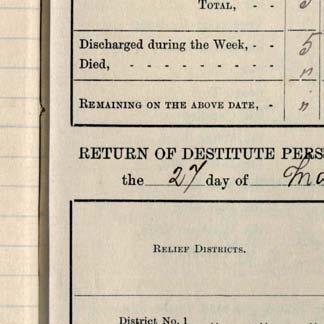 TOTAL, - - 5
Discharged during the Week, - - 5
Died, - - - - - - - - n
REMAINING ON THE ABOVE DATE, - n
RETURN OF DESTITUTE PERS
the 27 day of Ma
RELIEF DISTRICTS.
District No. 1